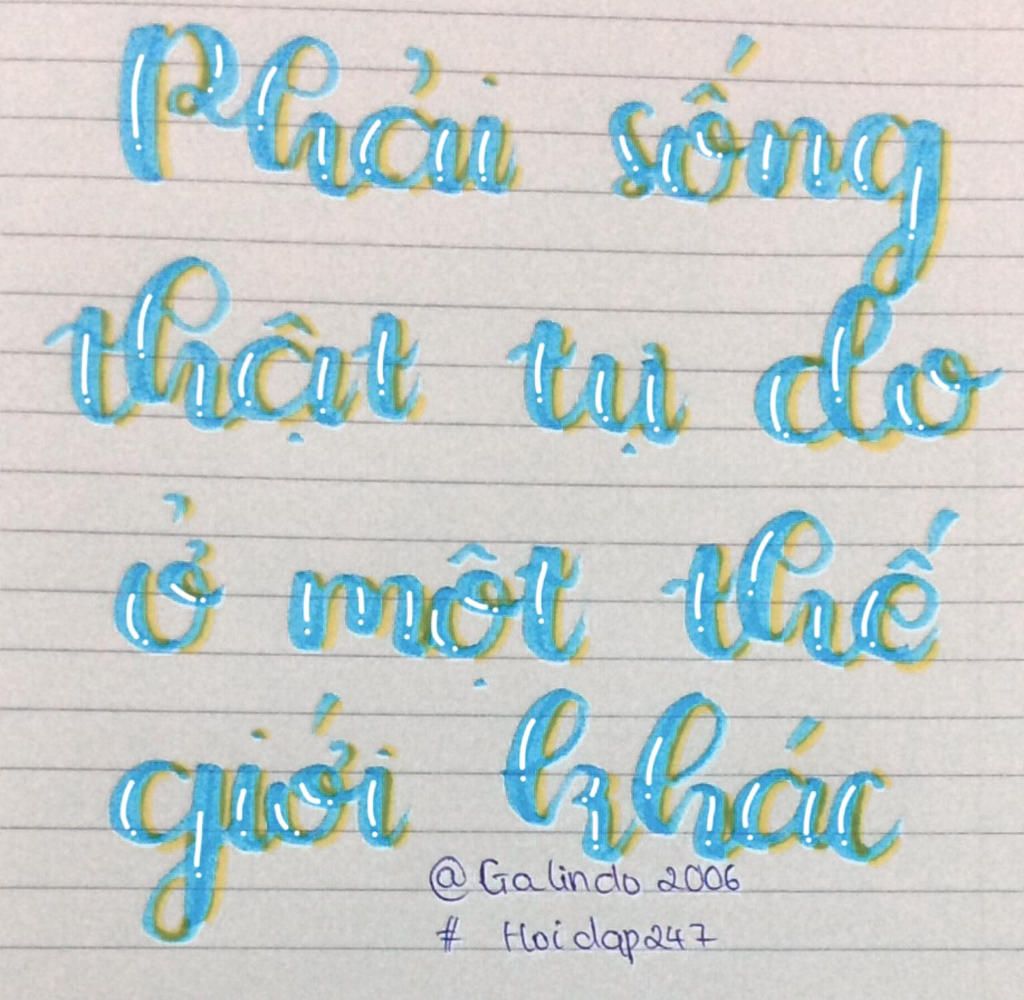 Phải sống
thật tự do
ở một thế
giới khác
@Galindo 2006
# Hoidap247